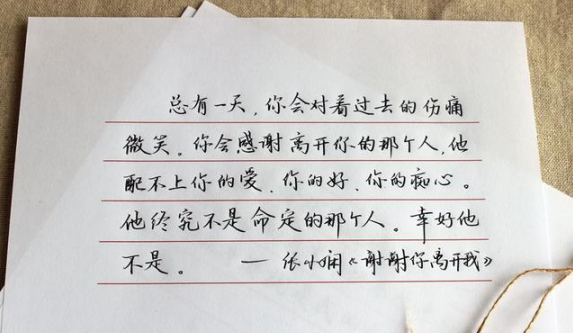 总有一天，你会对着过去的伤痛
微笑。你会感谢离开你的那个人，他
配不上你的爱、你的好、你的痴心。
他终究不是命定的那个人。幸好他
不是。 — 张小娴《谢谢你离开我》